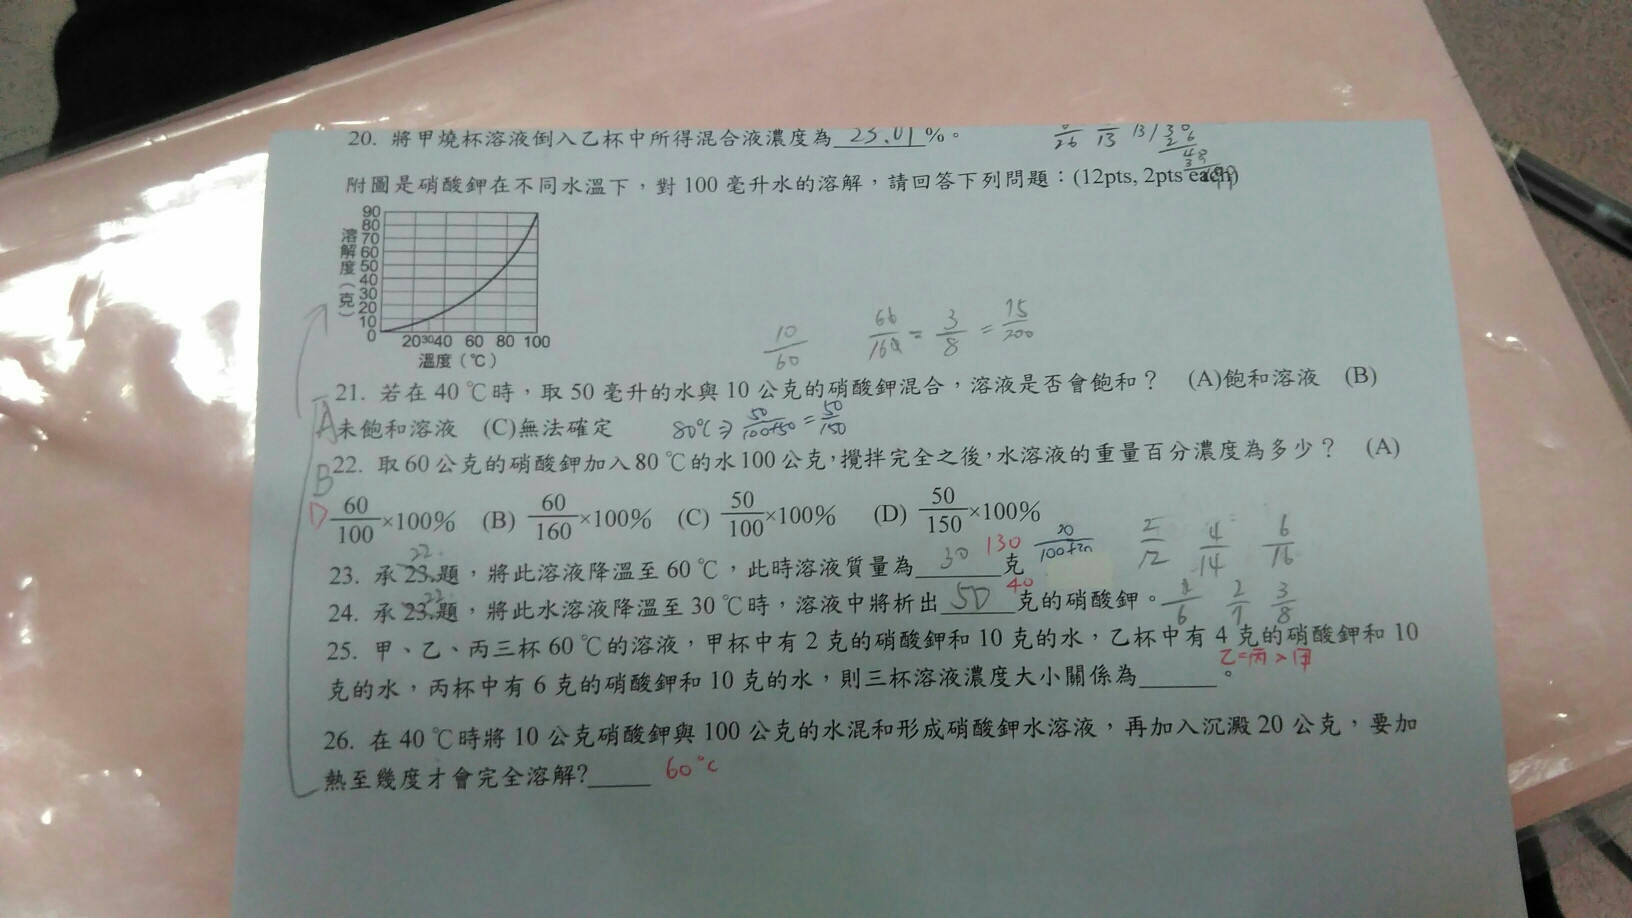 20. 將甲燒杯溶液倒入乙杯中所得混合液濃度為 23.01 %。
附圖是硝酸鉀在不同水溫下，對 100 毫升水的溶解，請回答下列問題：(12pts, 2pts each)
90
80
70
60
50
40
30
20
10
0
溶解度（克）
20 30 40 60 80 100
溫度（℃）
10/60 66/164 = 3/8 = 75/200
21. 若在 40 ℃時，取 50 毫升的水與 10 公克的硝酸鉀混合，溶液是否會飽和？ (A)飽和溶液 (B)
A 未飽和溶液 (C)無法確定 80℃⇒ 50/100+50 = 50/150
B 22. 取 60 公克的硝酸鉀加入 80 ℃的水 100 公克，攪拌完全之後，水溶液的重量百分濃度為多少？ (A)
D 60/100 ×100% (B) 60/160 ×100% (C) 50/100 ×100% (D) 50/150 ×100%
23. 承 23.題，將此溶液降溫至 60 ℃，此時溶液質量為 30 克 130
22.
24. 承 23.題，將此水溶液降溫至 30 ℃時，溶液中將析出 50 克的硝酸鉀。 40
22.
4/14 6/16
3/8
25. 甲、乙、丙三杯 60 ℃的溶液，甲杯中有 2 克的硝酸鉀和 10 克的水，乙杯中有 4 克的硝酸鉀和 10
克的水，丙杯中有 6 克的硝酸鉀和 10 克的水，則三杯溶液濃度大小關係為 。 乙=丙>甲
26. 在 40 ℃時將 10 公克硝酸鉀與 100 公克的水混和形成硝酸鉀水溶液，再加入沉澱 20 公克，要加
熱至幾度才會完全溶解? 60℃